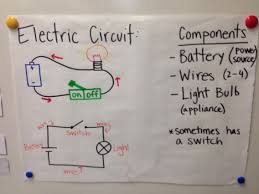 Electric Circuit:
on off
wire
Switch
Battery
Light
wire
Components
- Battery (Power source)
- Wires (2-4)
- Light Bulb
(appliance)
*sometimes has
a switch